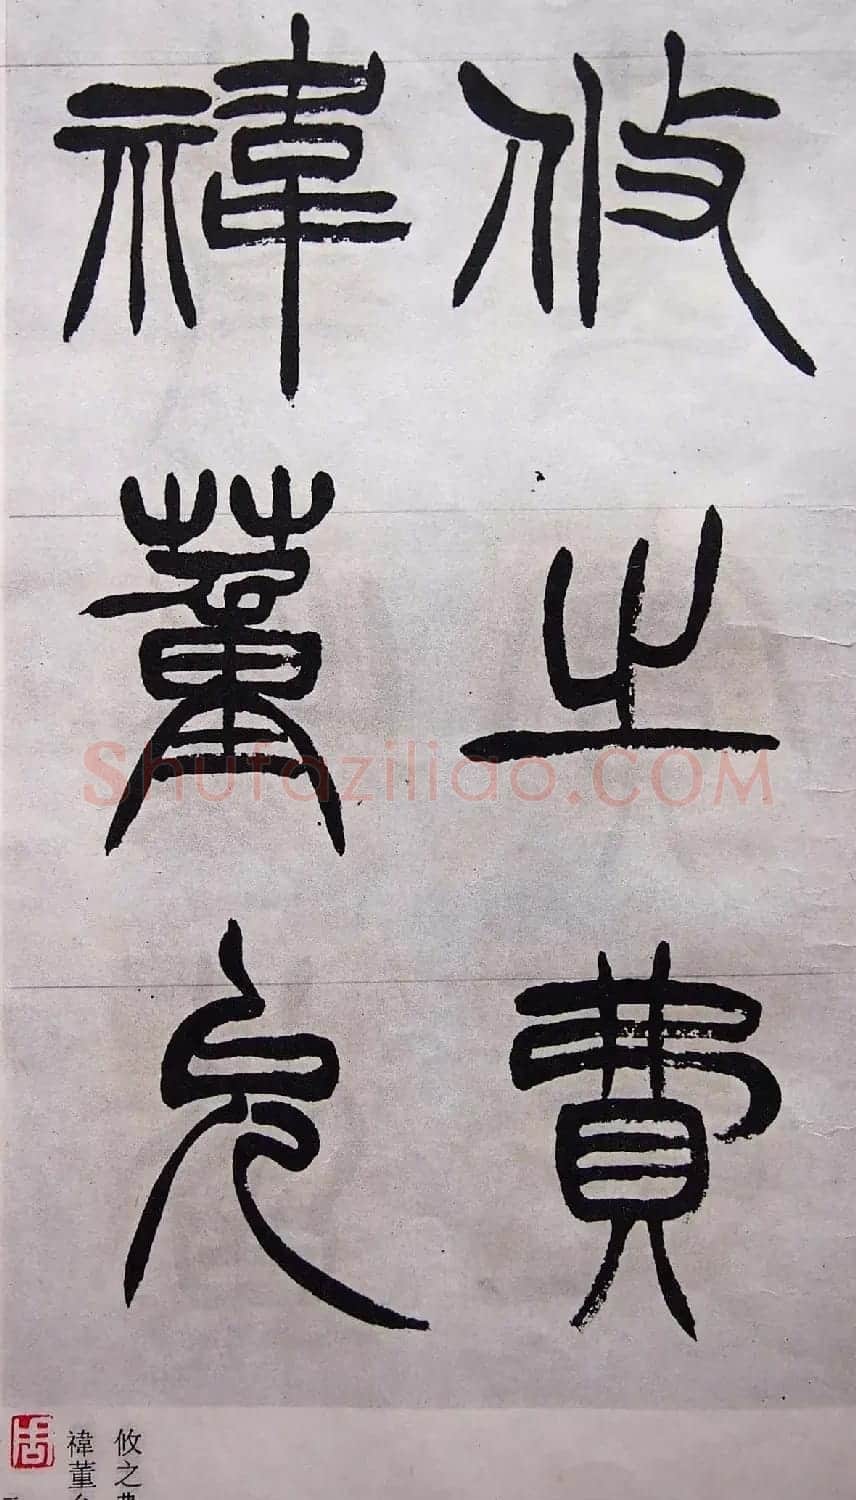 攸之費
禕董允
Shufaziliao.COM
攸之
禕董